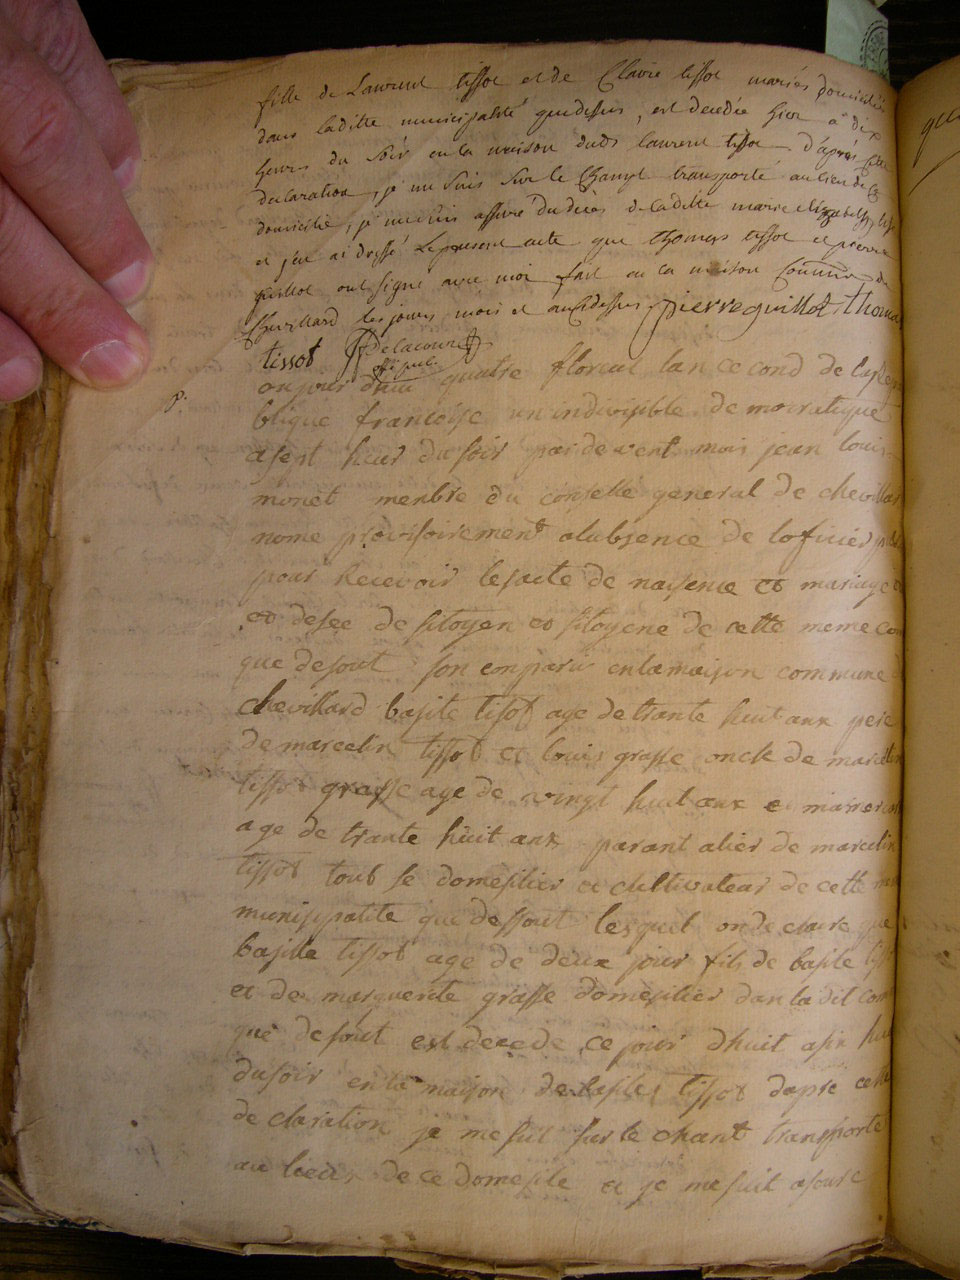 fille de Laurent tissot et de Claire tissot mariés domiciliés
dans laditte municipalité que dessus, est decedée hier a dix
heures du soir en la maison dudt laurent tissot d'après cette
declaration, je me suis sur le Champ transporté au lieu de ce
domicile, je me suis assuré du decès de laditte marie elizabeth
et j'en ai dressé le present acte que thomas tissot et pierre
guillot ont signé avec moi fait en la maison Commune de
Chevillard les jours, mois et an cidessus pierre guillot thomas
tissot Delacour
off. pub.
P.
onjour dhui quatre floreal lan cecond de la repu
blique francoise un indivisible de mocratique
asept heur dusoir par devent moi jean louis
monet menbre du conselle general de chevillar
nome provisoirement alubsence de loficier
pour Recevoir lesacte de naisence et mariage
et desee de sitoyen et sitoyene de cette meme co
que desout son conparu enlamaison commune
chevillard basile tisot age de trante huit anx pere
de marcelin tissot et louis grasse oncle de marcelin
tissot grasse age de vingt huit anx et
age de trante huit anx parant alier de marcelin
tissot tout se domesilier et cultivatear de cette
munisipalite que dessout lesquel on declare que
basile tissot age de deux jour fils de basile
et de marguerite grasse domesilier dan la dit com
que desout est decede ce jour dhuit asix
dusoir en la maison de basile tissot dapre cette
de claration je me suit sur le chant transporte
au lieux de ce domesile et je me suit asure